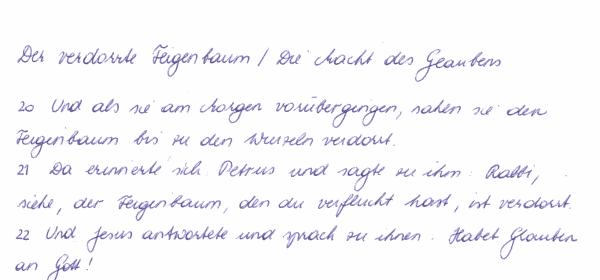 Der verdorrte Feigenbaum / Die Macht des Glaubens
20 Und als sie am Morgen vorübergingen, sahen sie den
Feigenbaum bis zu den Wurzeln verdorrt.
21 Da erinnerte sich Petrus und sagte zu ihm: Rabbi,
siehe, der Feigenbaum, den du verflucht hast, ist verdorrt.
22 Und Jesus antwortete und sprach zu ihnen: Habet Glauben
an Gott!